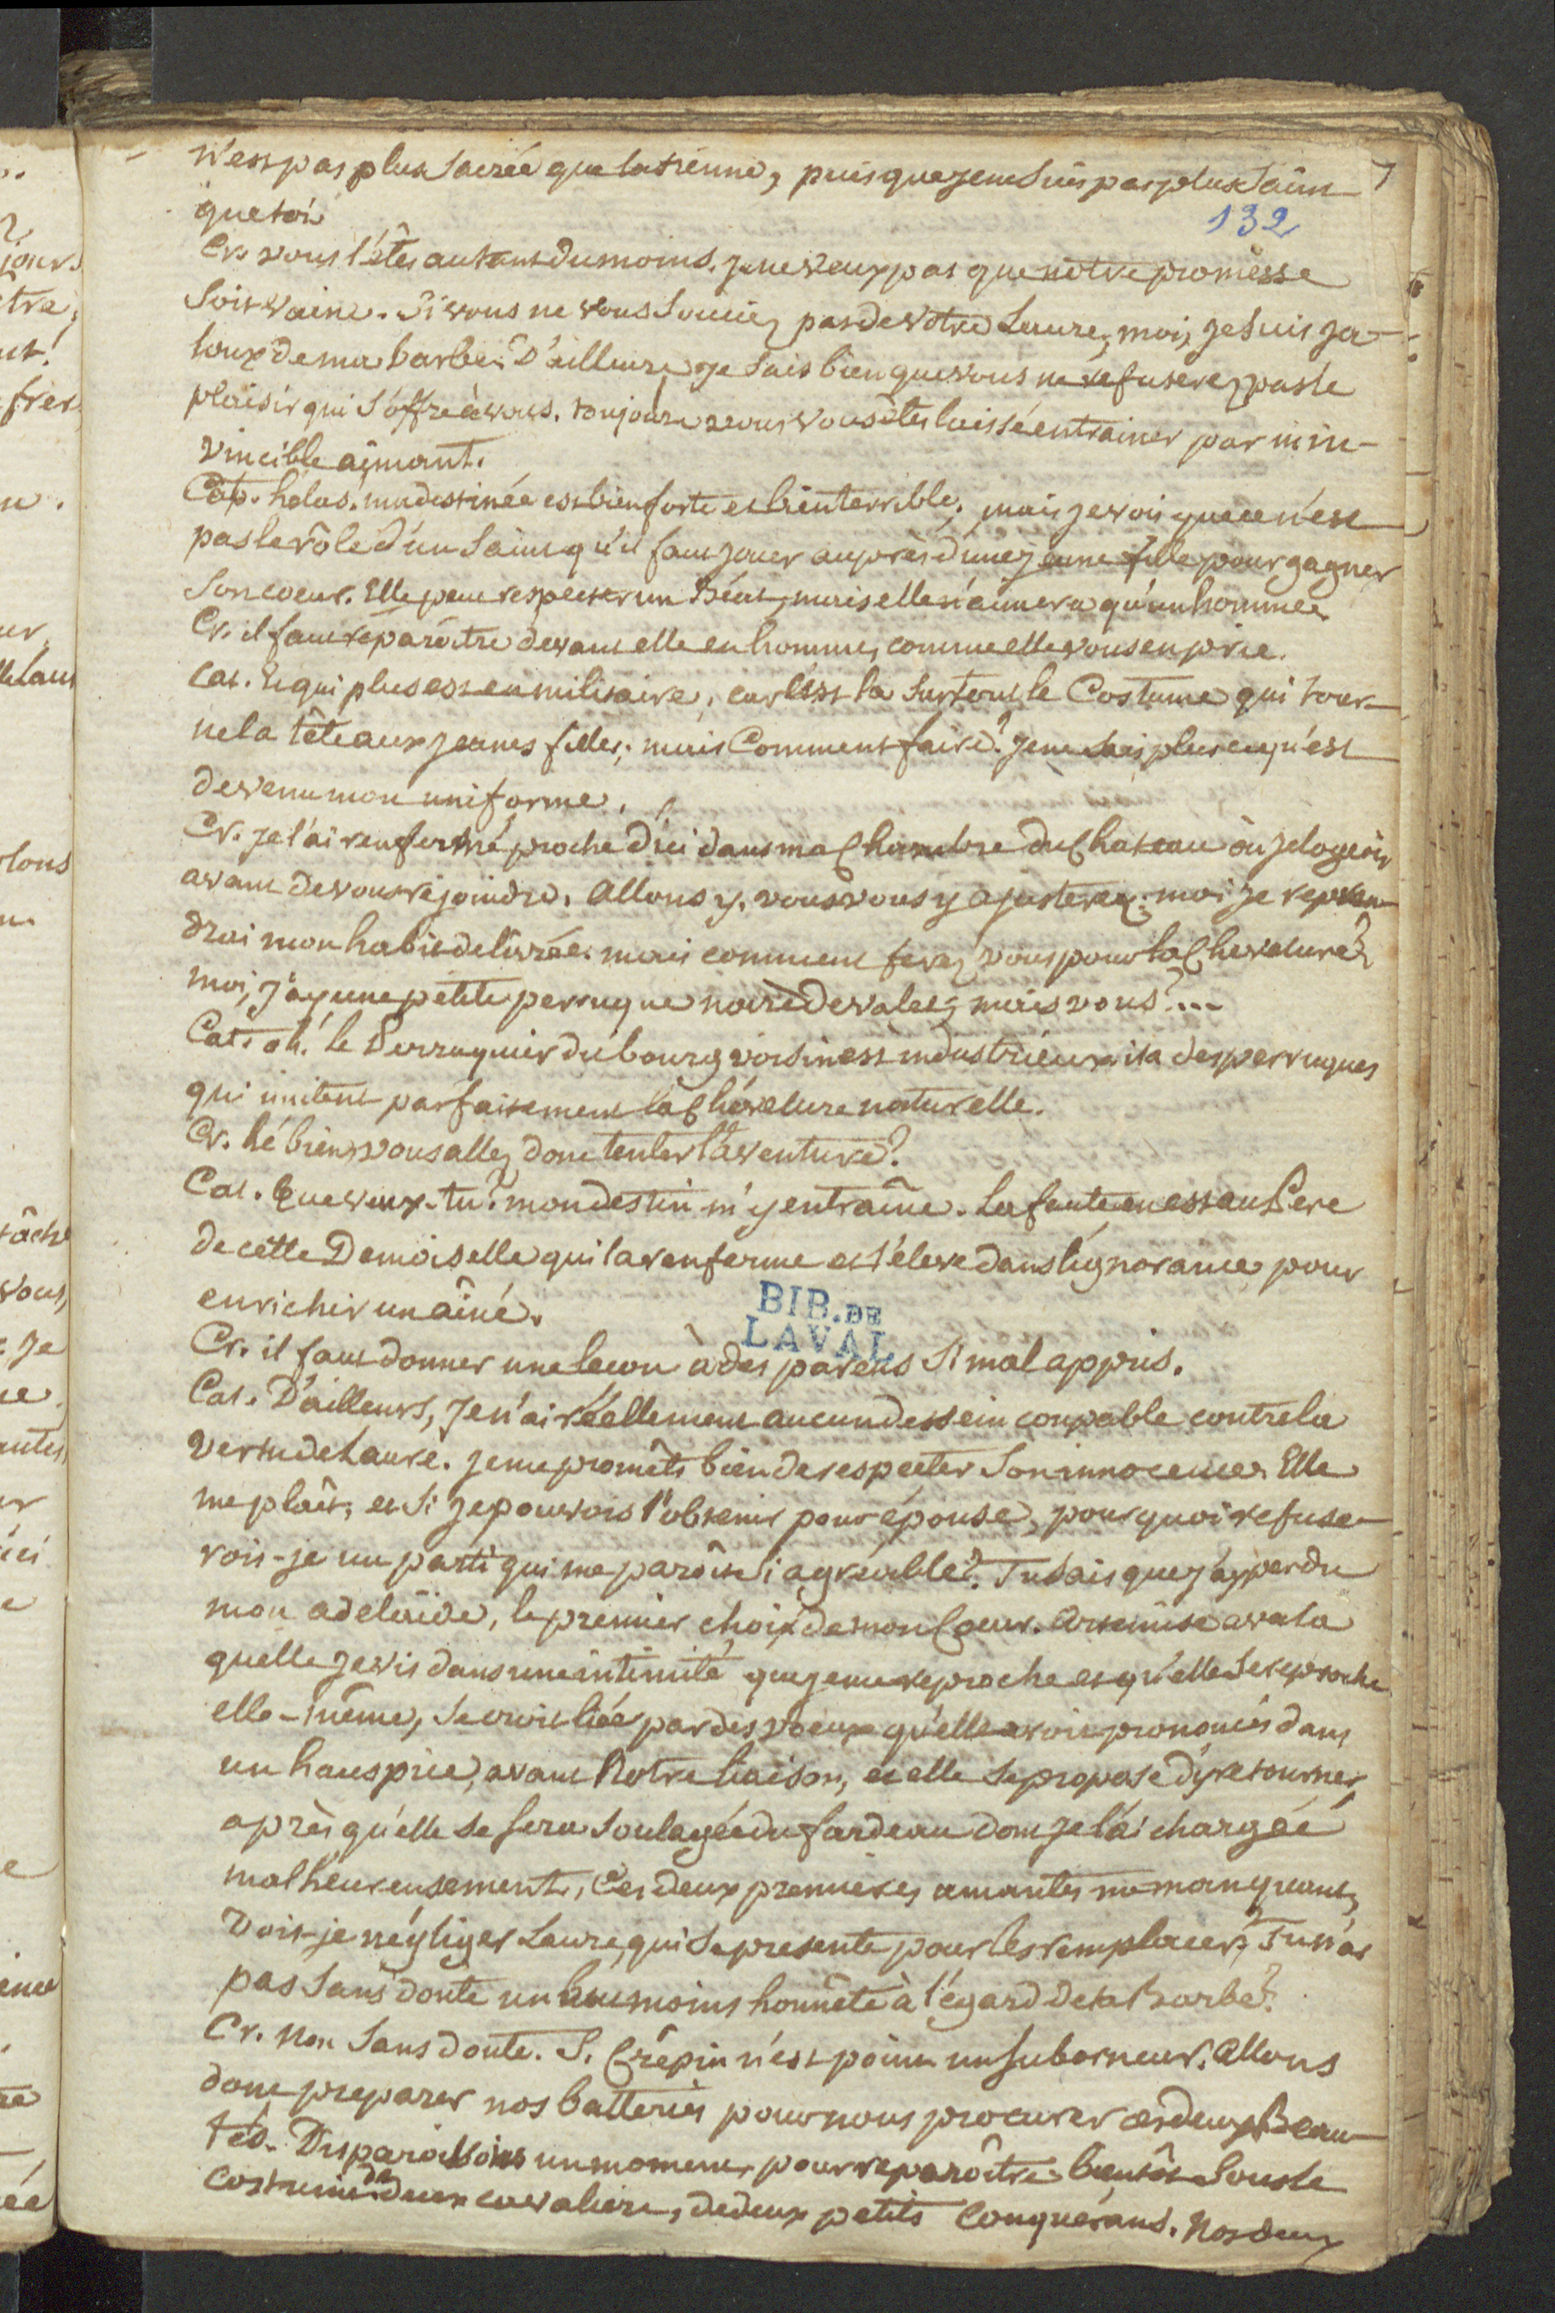 n'est pas plus sacrée que la tienne, puisque je ne suis pas plus saint 7
que toi 132
Cr. vous l'êtes autant du moins. je ne veux pas que notre promesse
soit vaine. Si vous ne vous souciez pas de votre Laure, moi, je suis ja-
loux de ma barbe. D'ailleurs je sais bien que vous ne refuserez pas le
plaisir qui s'offre à vous. toujours vous vous êtes laissé entrainer par un in-
vincible aimant.
Cat. hélas. ma destinée est bien forte et bien terrible. mais je vois que ce n'est
pas le rôle d'un saint qu'il faut jouer auprès d'une jeune fille pour gagner
son coeur. Elle peut respecter un Béat, mais elle n'aimera qu'un homme.
Cr. il faut réparoître devant elle en homme, comme elle vous en prie.
Cat. Et qui plus est en militaire, car c'est la surtout le Costume qui tour-
ne la tête aux jeunes filles; mais Comment faire? je ne sais plus ce qu'est
devenu mon uniforme.
Cr. je l'ai renfermé proche d'ici dans ma Chambre du Chateau où je logeois
avant de vous rejoindre. Allons y. vous vous y ajusterez; moi je repren-
drai mon habit de livrée. mais comment ferez vous pour la Chevelure?
moi, j'ay une petite perruque noire de valet; mais vous?...
Cat. oh! le Perruquier du bourg voisin est industrieux; il a des perruques
qui imitent parfaitement la Chévelure naturelle.
Cr. hé bien vous allez donc tenter l'aventure?
Cat. Que veux-tu? mon destin m'y entraîne. La faute en est au Pere
de cette Demoiselle qui la renferme et l'éleve dans l'ignorance pour
enrichir un aîné.
BIB. DE
LAVAL
Cr. il faut donner une lecon à des parens si mal appris.
Cat. D'ailleurs, Je n'ai réellement aucun dessein coupable contre la
vertu de Laure. je me promêts bien de respecter son innocence. Elle
me plait, et si je pouvois l'obtenir pour épouse, pourquoi refuse-
rois-je un parti qui me paroît si agréable? Tu sais que j'ay perdu
mon adelaïde, le premier choix de mon Coeur. Artemise avec la
quelle je vis dans une intimité que je me reproche et qu'elle se reproche
elle-même, se croit liée par des voeux qu'elle avoit prononcés dans
un hauspice, avant Notre liaison, et elle se propose d'y retourner
après qu'elle se sera soulagée du fardeau dont je l'ai chargée
malheureusement, Ces deux premieres amantes me manquant,
Dois-je négliger Laure, qui se presente pour les remplacer? Tu n'as
pas sans doute un but moins honnête à l'égard de ta Barbe?
Cr. Non sans doute. S. Crêpin n'est point un suborneur. Allons
donc preparer nos batteries pour nous procurer ces deux Beau-
tés. Disparoissons un moment pour reparoître bientôt sous le
costume de deux cavaliers, de deux petits Conquérans. Nos deux